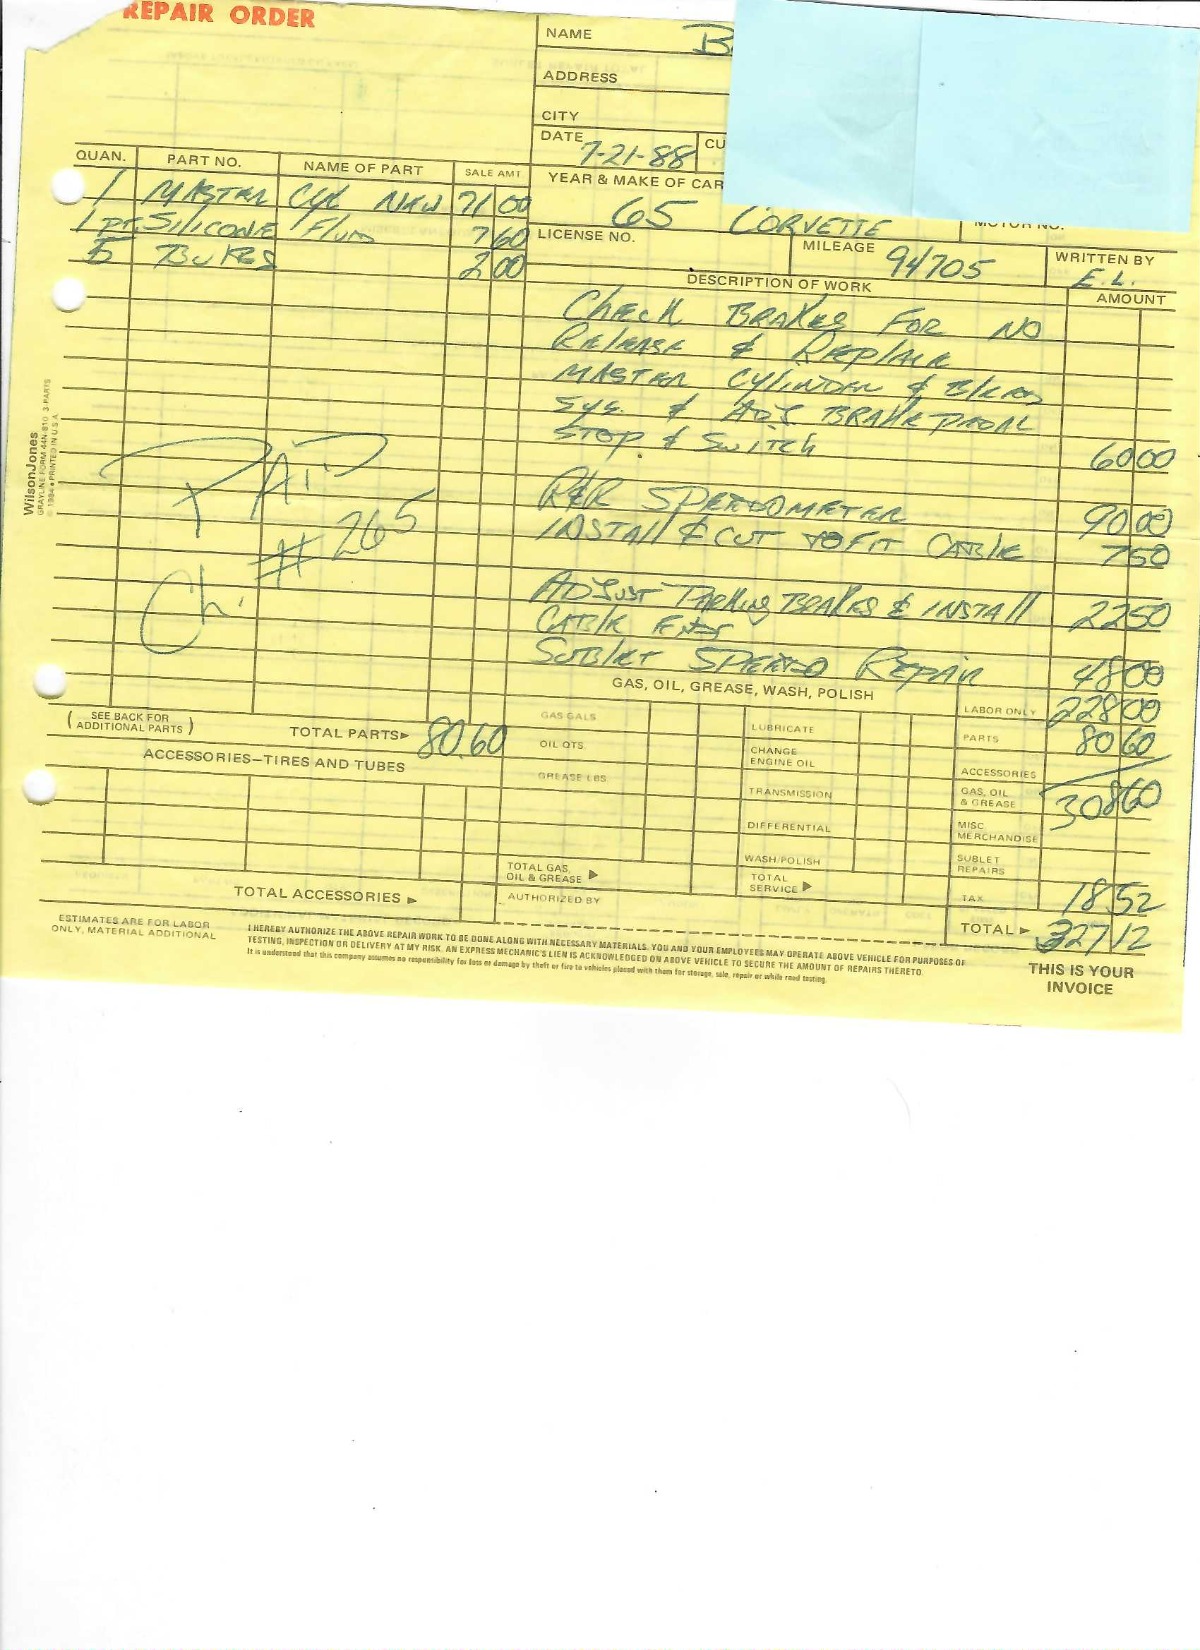 REPAIR ORDER
NAME B
ADDRESS
CITY
DATE 7-21-88 CU
QUAN. PART NO. NAME OF PART SALE AMT.
1 MASTER CYL NEW 71 00
1 PT. SILICONE FLUID 7 60
5 2 00
YEAR & MAKE OF CAR
65 CORVETTE
MOTOR NO.
LICENSE NO.
MILEAGE 94705
WRITTEN BY
E.L.
DESCRIPTION OF WORK AMOUNT
CHECK BRAKES FOR NO
RELEASE & REPLACE
MASTER CYLINDER &
SYS. & ADJ BRAKE PEDAL
STOP & SWITCH 60 00
R&R SPEEDOMETER 90 00
INSTALL & CUT TO FIT CABLE 7 50
ADJUST PARKING BRAKES & INSTALL 22 50
CABLE ENDS
SUBLET SPEEDO REPAIR 48 00
PAID
CH. # 265
WilsonJones
GRAYLINE FORM 44N-810 3-PARTS
© 1984 • PRINTED IN U.S.A.
GAS, OIL, GREASE, WASH, POLISH
(SEE BACK FOR ADDITIONAL PARTS)
TOTAL PARTS 80.60
ACCESSORIES–TIRES AND TUBES
TOTAL ACCESSORIES
GAS GALS
OIL QTS.
GREASE LBS.
TOTAL GAS, OIL & GREASE
LUBRICATE
CHANGE ENGINE OIL
TRANSMISSION
DIFFERENTIAL
WASH/POLISH
TOTAL SERVICE
LABOR ONLY 228 00
PARTS 80 60
ACCESSORIES
GAS, OIL & GREASE 308 60
MISC. MERCHANDISE
SUBLET REPAIRS
TAX 18 52
TOTAL 327 12
AUTHORIZED BY
ESTIMATES ARE FOR LABOR
ONLY, MATERIAL ADDITIONAL
I HEREBY AUTHORIZE THE ABOVE REPAIR WORK TO BE DONE ALONG WITH NECESSARY MATERIALS. YOU AND YOUR EMPLOYEES MAY OPERATE ABOVE VEHICLE FOR PURPOSES OF
TESTING, INSPECTION OR DELIVERY AT MY RISK. AN EXPRESS MECHANIC'S LIEN IS ACKNOWLEDGED ON ABOVE VEHICLE TO SECURE THE AMOUNT OF REPAIRS THERETO.
It is understood that this company assumes no responsibility for loss or damage by theft or fire to vehicles placed with them for storage, sale, repair or while road testing.
THIS IS YOUR
INVOICE